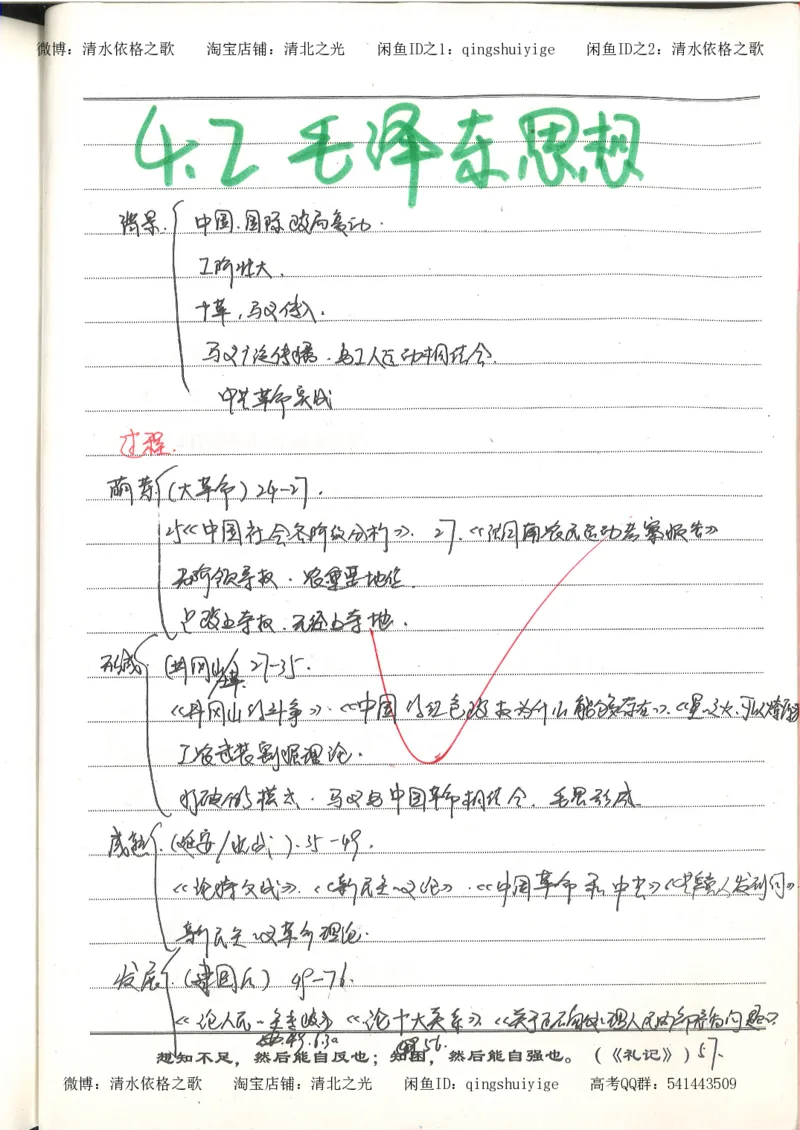 微博：清水依格之歌 淘宝店铺：清北之光 闲鱼ID之1：qingshuiyige 闲鱼ID之2：清水依格之歌
4.2 毛泽东思想
背景. 中国.国际政局变动.
工阶壮大.
十革,马义传入.
马义广泛传播.与工人运动相结合.
中共革命实践
过程.
萌芽 (大革命) 24-27.
25《中国社会各阶级分析》. 27.《湖南农民运动考察报告》
无阶领导权.农重要地位.
只政上夺权.无经上夺地.
形成. (井冈山) 27-35.
《井冈山的斗争》.《中国的红色政权为什么能够存在》.《星火,可以燎原
工农武装割据理论.
打破俄模式.马义与中国革命相结合.毛思形成
成熟. (延安/ ) 35-49.
《论持久战》.《新民主义论》.《中国革命和中共》《共产党人发刊词》
新民主义革命理论.
发展. (建国后) 49-76.
《论人民民主专政》《论十大关系》.《关于正确处理人民内部矛盾的问题》
49.6.30 56. 57.
知不足，然后能自反也；知困，然后能自强也。（《礼记》）
微博：清水依格之歌 淘宝店铺：清北之光 闲鱼ID：qingshuiyige 高考QQ群：541443509